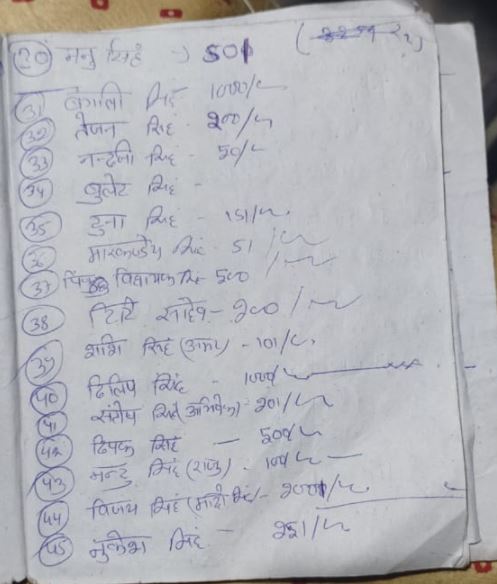 30 मनु सिंह → 501
31 बंगाली सिंह 1000/-
32 तेजन सिंह - 200/-
33 नन्दजी सिंह - 50/-
34 बुलेट सिंह -
35 टुना सिंह - 151/-
36 मारकण्डेय सिंह - 51/-
37 विनायक सिंह 500
38 टिटि साहेब - 200/-
39 शशि सिंह - 101/-
40 दिलिप सिंह - 1000/-
41 संतोष सिंह (अभिषेक) - 201/-
42 दिपक सिंह - 500/-
43 मन्टु सिंह (राजु) - 100/-
44 विजय सिंह - 2000/-
45 मुकेश सिंह - 251/-